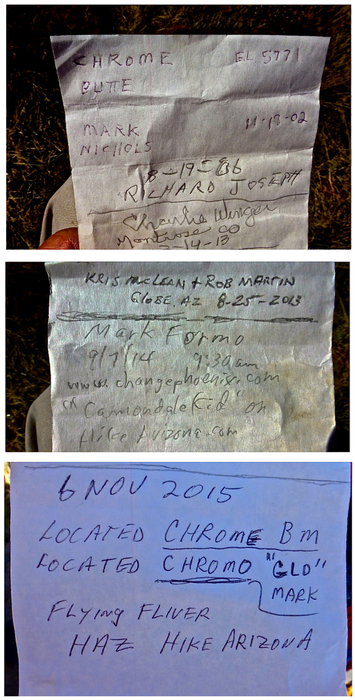 CHROME EL 5771
BUTTE
MARK 11-13-02
NICHOLS
8-19-06
RICHARD JOSEPH
Charlie Winger
Montrose CO
5-14-13
KRIS McLEAN + ROB MARTIN
GLOBE, AZ 8-25-2013
Mark Formo
9/7/14 9:30am
www.changephoenix.com
"Cannondale Kid" on
HikeArizona.com
6 NOV 2015
LOCATED CHROME BM
LOCATED CHROMO "GLO"
MARK
FLYING FLIVER
HAZ HIKE ARIZONA